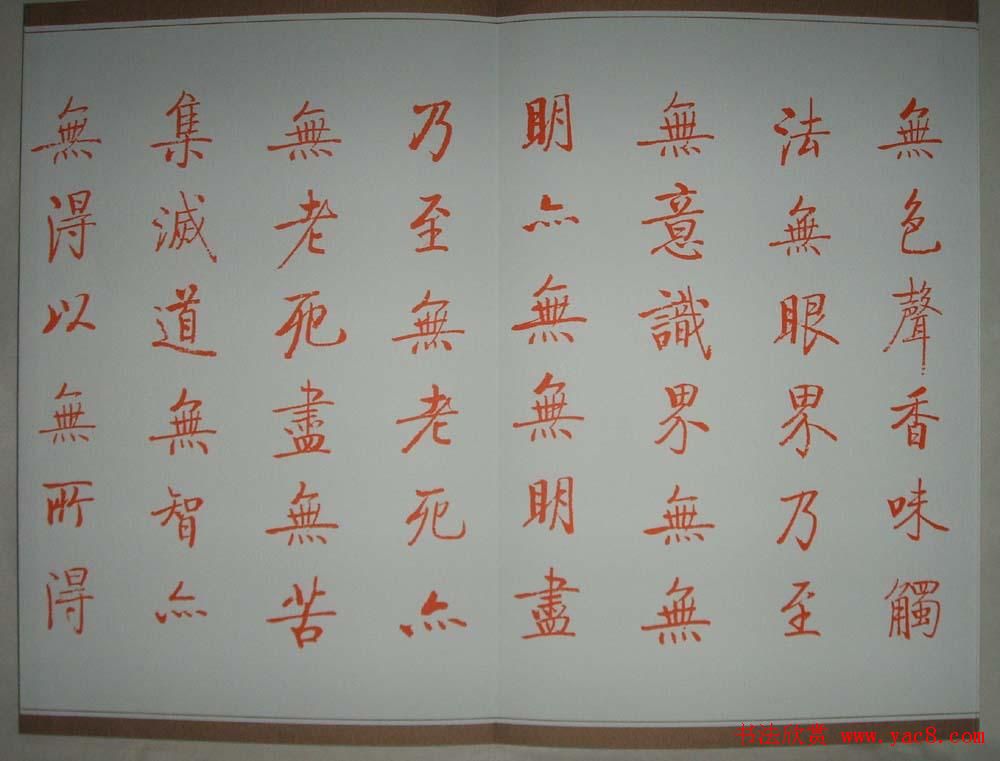 無色聲香味觸
法無眼界乃至
無意識界無無
明亦無無明盡
乃至無老死亦
無老死盡無苦
集滅道無智亦
無得以無所得
书法欣赏 www.yac8.com